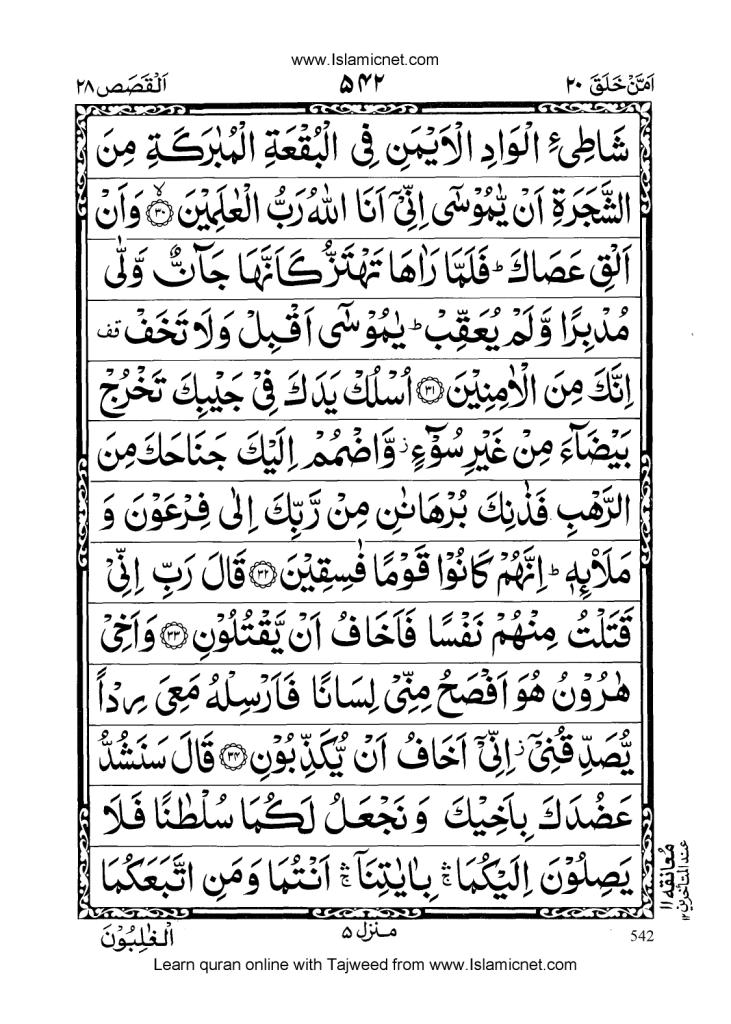 www.Islamicnet.com
اَمَّنْ خَلَقَ ۲۰ ۵۴۲ اَلْقَصَص ۲۸
شَاطِیِٔ الْوَادِ الْاَیْمَنِ فِی الْبُقْعَةِ الْمُبٰرَكَةِ مِنَ
الشَّجَرَةِ اَنْ یّٰمُوْسٰۤى اِنِّیْۤ اَنَا اللّٰهُ رَبُّ الْعٰلَمِیْنَ ﴿۳۰﴾ۙ وَاَنْ
اَلْقِ عَصَاكَ ؕ فَلَمَّا رَاٰهَا تَهْتَزُّ كَاَنَّهَا جَآنٌّ وَّلّٰى
مُدْبِرًا وَّلَمْ یُعَقِّبْ ؕ یٰمُوْسٰۤى اَقْبِلْ وَلَا تَخَفْ تف
اِنَّكَ مِنَ الْاٰمِنِیْنَ ﴿۳۱﴾ اُسْلُكْ یَدَكَ فِیْ جَیْبِكَ تَخْرُجْ
بَیْضَآءَ مِنْ غَیْرِ سُوْٓءٍ ز وَّاضْمُمْ اِلَیْكَ جَنَاحَكَ مِنَ
الرَّهْبِ فَذٰنِكَ بُرْهَانٰنِ مِنْ رَّبِّكَ اِلٰى فِرْعَوْنَ وَ
مَلَا۟ىِٕهٖ ؕ اِنَّهُمْ كَانُوْا قَوْمًا فٰسِقِیْنَ ﴿۳۲﴾ قَالَ رَبِّ اِنِّیْ
قَتَلْتُ مِنْهُمْ نَفْسًا فَاَخَافُ اَنْ یَّقْتُلُوْنِ ﴿۳۳﴾ وَاَخِیْ
هٰرُوْنُ هُوَ اَفْصَحُ مِنِّیْ لِسَانًا فَاَرْسِلْهُ مَعِیَ رِدْاً
یُّصَدِّقُنِیْۤ ز اِنِّیْۤ اَخَافُ اَنْ یُّكَذِّبُوْنِ ﴿۳۴﴾ قَالَ سَنَشُدُّ
عَضُدَكَ بِاَخِیْكَ وَنَجْعَلُ لَكُمَا سُلْطٰنًا فَلَا
یَصِلُوْنَ اِلَیْكُمَا ۛۚ بِاٰیٰتِنَاۤ ۛۚ اَنْتُمَا وَمَنِ اتَّبَعَكُمَا
مُعانقه ۱۱
عند المتاخرین ۱۲
542 منزل ۵ الْغٰلِبُوْنَ
Learn quran online with Tajweed from www.Islamicnet.com